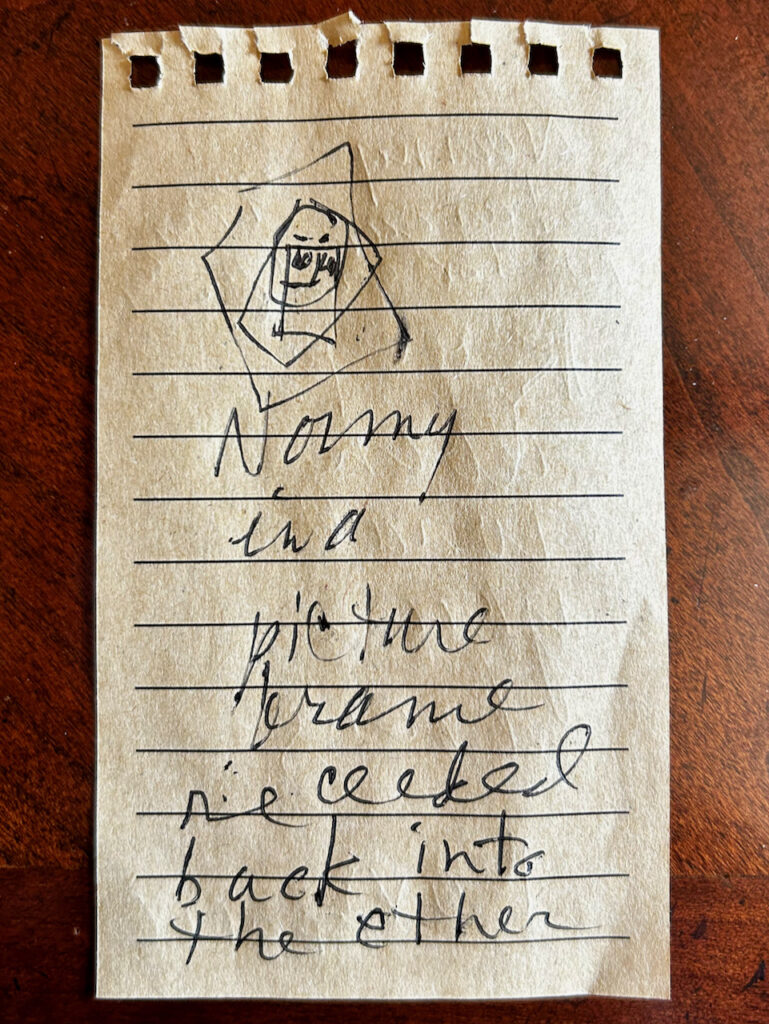 Normy
in a
picture
frame
receeded
back into
the ether